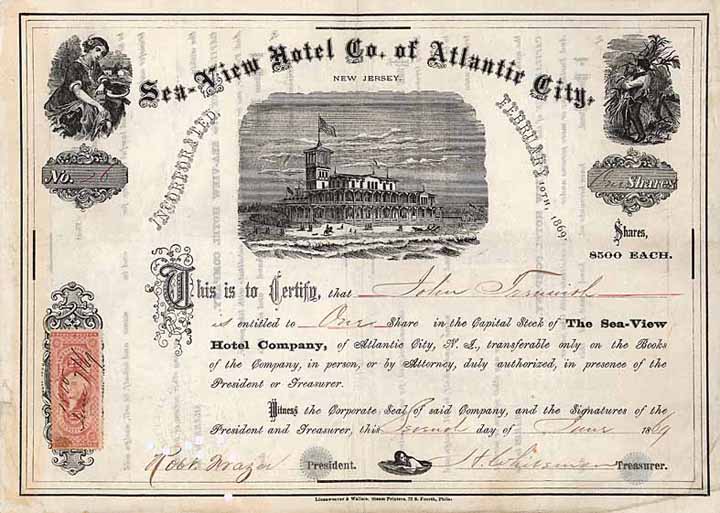 Sea-View Hotel Co. of Atlantic City,
NEW JERSEY.
INCORPORATED, FEBRUARY 10TH, 1869.
No. 26
One Shares
Shares,
$500 EACH.
This is to Certify, that John
is entitled to One Share in the Capital Stock of The Sea-View
Hotel Company, of Atlantic City, N. J., transferable only on the Books
of the Company, in person, or by Attorney, duly authorized, in presence of the
President or Treasurer.
Witness the Corporate Seal of said Company, and the Signatures of the
President and Treasurer, this Second day of June 1869
Robt. Frazer President. Treasurer.
& Wallace, Steam Printers, 72 S. Fourth, Phila.